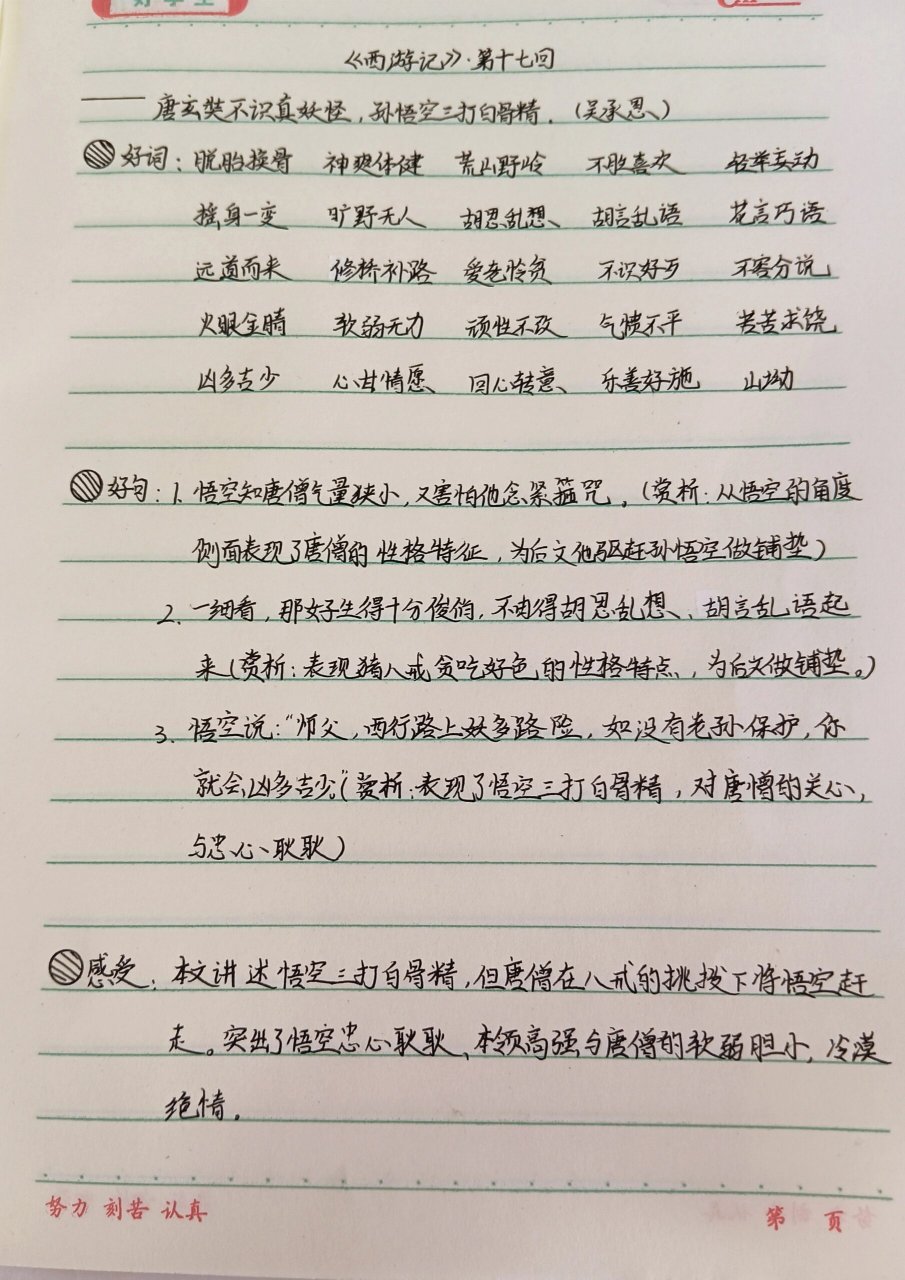 好学生
《西游记》·第十七回
——唐玄奘不识真妖怪，孙悟空三打白骨精．（吴承恩）
好词：脱胎换骨 神爽体健 荒山野岭 不胜喜欢 轻举妄动
摇身一变 旷野无人 胡思乱想、 胡言乱语 花言巧语
远道而来 修桥补路 爱老怜贫 不识好歹 不容分说
火眼金睛 软弱无力 顽性不改 气愤不平 苦苦求饶
凶多吉少 心甘情愿 回心转意 乐善好施 山坳
好句：1. 悟空知唐僧气量狭小，又害怕他念紧箍咒．（赏析：从悟空的角度
侧面表现了唐僧的性格特征，为后文他驱赶孙悟空做铺垫）
2. 一细看，那女子生得十分俊俏，不由得胡思乱想、胡言乱语起
来（赏析：表现猪八戒贪吃好色的性格特点，为后文做铺垫。）
3. 悟空说：“师父，西行路上妖多路险，如没有老孙保护，你
就会凶多吉少”（赏析：表现了悟空三打白骨精，对唐僧的关心，
与忠心耿耿）
感受：本文讲述悟空三打白骨精，但唐僧在八戒的挑拨下将悟空赶
走。突出了悟空忠心耿耿、本领高强与唐僧的软弱胆小，冷漠
绝情。
努力 刻苦 认真
第 页